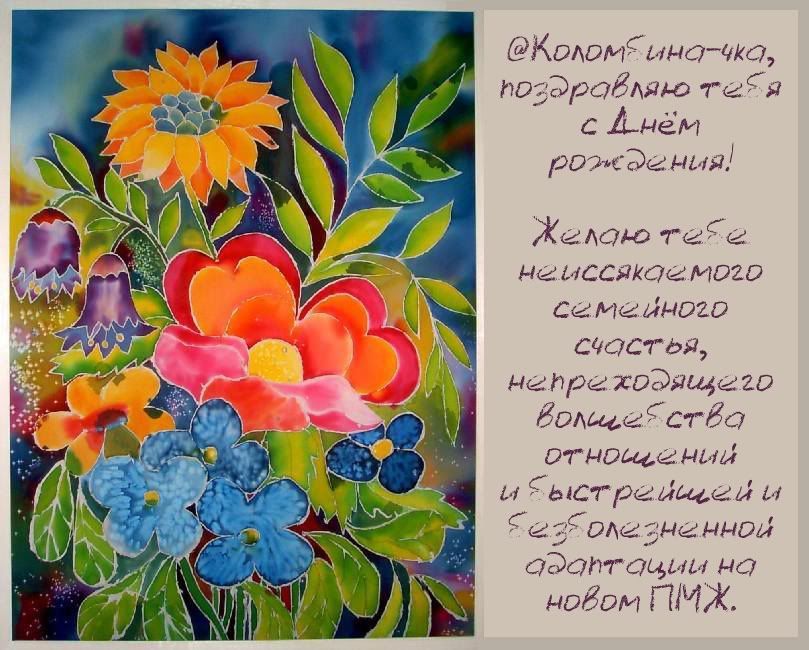 @Коломбина-чка,
поздравляю тебя
с Днём
рождения!
Желаю тебе
неиссякаемого
семейного
счастья,
непреходящего
волшебства
отношений
и быстрейшей и
безболезненной
адаптации на
новом ПМЖ.